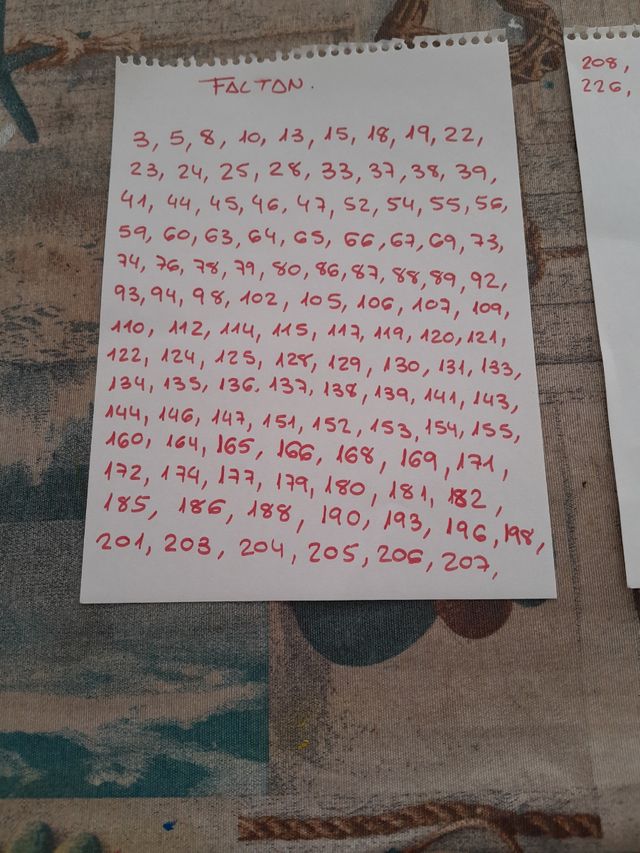 FALTAN.
3, 5, 8, 10, 13, 15, 18, 19, 22,
23, 24, 25, 28, 33, 37, 38, 39,
41, 44, 45, 46, 47, 52, 54, 55, 56,
59, 60, 63, 64, 65, 66, 67, 69, 73,
74, 76, 78, 79, 80, 86, 87, 88, 89, 92,
93, 94, 98, 102, 105, 106, 107, 109,
110, 112, 114, 115, 117, 119, 120, 121,
122, 124, 125, 128, 129, 130, 131, 133,
134, 135, 136. 137, 138, 139, 141, 143,
144, 146, 147, 151, 152, 153, 154, 155,
160, 164, 165, 166, 168, 169, 171,
172, 174, 177, 179, 180, 181, 182,
185, 186, 188, 190, 193, 196, 198,
201, 203, 204, 205, 206, 207,
208,
226,